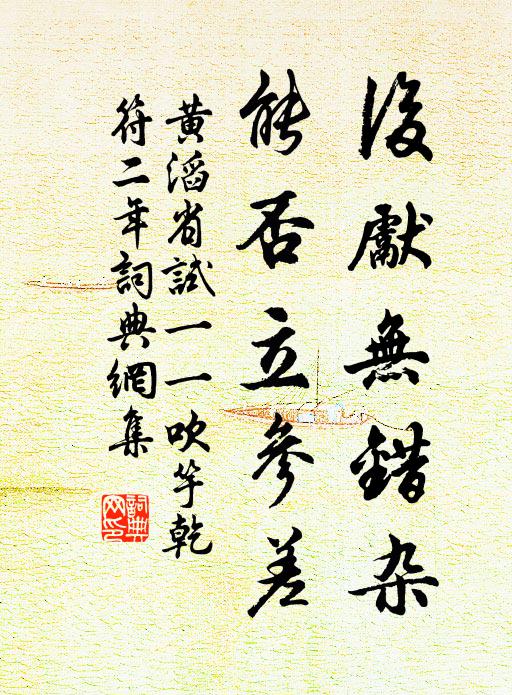 後獻無錯杂
能否立參差
黃滔省試一一吹竽乾
符二年詞典網集
詞典網印